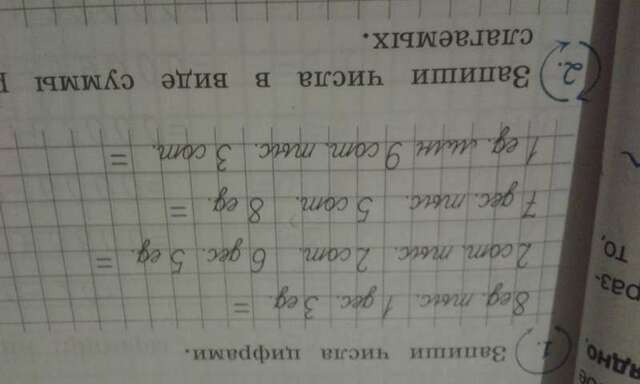 1. Запиши числа цифрами.
8 ед. тыс. 1 дес. 3 ед. =
2 сот. тыс. 2 сот. 6 дес. 5 ед. =
7 дес. тыс. 5 сот. 8 ед. =
1 ед. млн 9 сот. тыс. 3 сот. =
2. Запиши числа в виде суммы р
слагаемых.
ое
ядно,
раз-
то,